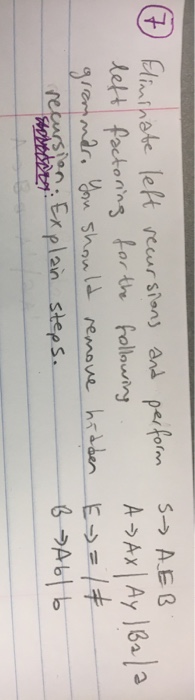 7 Eliminate left recursions and perform
left factoring for the following
grammar. You should remove hidden
recursion. Explain steps.
S → A E B
A → Ax | Ay | Ba | a
E → = | ≠
B → Ab | b